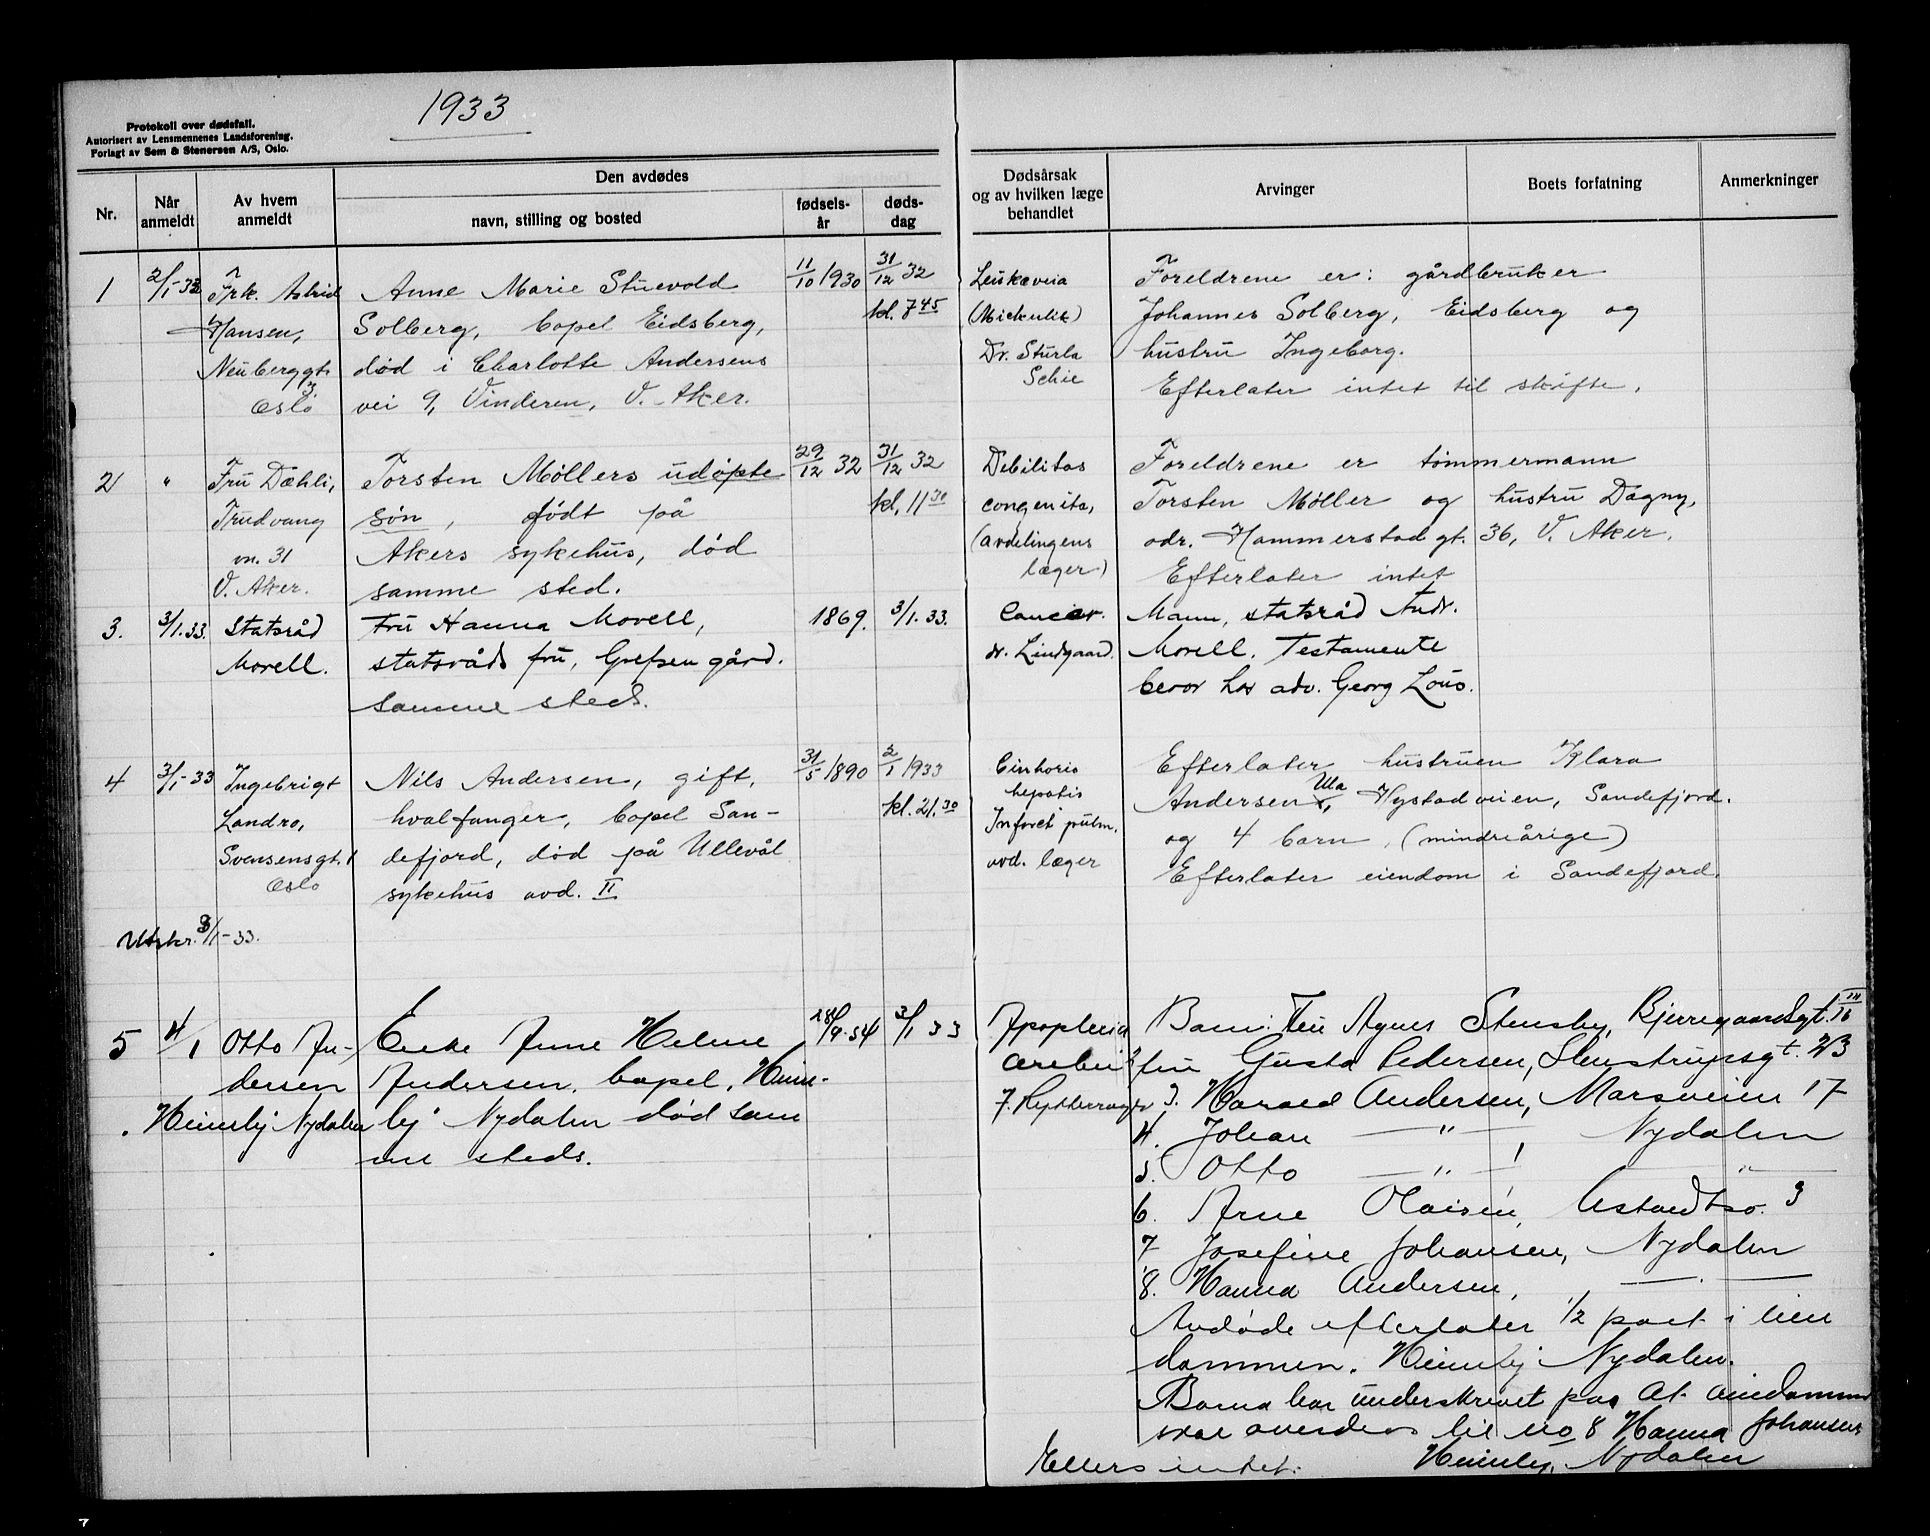 1933
Protokoll over dødsfall.
Autorisert av Lensmennenes Landsforening.
Forlagt av Sem & Stenersen A/S, Oslo.
Nr.
Når anmeldt
Av hvem anmeldt
Den avdødes
navn, stilling og bosted
fødsels-år
døds-dag
Dødsårsak
og av hvilken læge
behandlet
Arvinger
Boets forfatning
Anmerkninger
1
2/1-33
Frk. Astrid
Hansen,
Neuberggt.
3
Oslo
Anne Marie Stuevold
Solberg, bopel Eidsberg,
død i Charlotte Andersens
vei 9, Vinderen, V. Aker.
11/10 1930
31/12 32
kl. 7 45
(Mickulic)
Dr. Sturla
Schie
Foreldrene er: gårdbruker
Johannes Solberg, Eidsberg og
hustru Ingeborg.
Efterlater intet til skifte.
2
"
Fru Dæhli,
Trudvang
vn. 31
V. Aker.
Torsten Møllers udøpte
søn, født på
Akers sykehus, død
samme sted.
29/12 32
31/12 32
kl. 11 30
Debilitas
congenita,
(avdelingens
læger)
Foreldrene er tømmermann
Torsten Møller og hustru Dagny,
adr. Hammerstad gt. 36, V. Aker.
Efterlater intet
3.
3/1.33.
Statsråd
Morell.
Fru Hanna Morell,
statsråds fru, Grefsen gård.
samme steds.
1869.
3/1.33.
Cancer.
dr. Lindgaard.
Mann, statsråd Andr.
Morell. Testamente
beror hos adv. Georg Lous.
4
3/1-33
Ingebrigt
Landro,
Svensensgt. 1
Oslo
Nils Andersen, gift,
hvalfanger, bopel San-
defjord, død på Ullevål
sykehus avd. II
31/5 1890
2/1 1933
kl. 21.30
hepatis
Infarct pulm.
avd. læger
Efterlater hustruen Klara
Andersen, Ula Hystadveien, Sandefjord.
og 4 barn, (mindreårige)
Efterlater eiendom i Sandefjord.
Utskr. 3/1-33.
5
4/1
Otto An-
dersen
Heimly Nydalen
Enke Anne Helene
Andersen, bopel, Heim-
ly Nydalen død sam
me steds.
28/9-54
3/1 33
Apoplexia
Barn: Fru Agnes Stensby, Bjerregaardsgt. 16 III
2 fru Gusta Pedersen, 23
3. Harald Andersen, Marsveien 17
4. Johan — " — , Nydalen
5. Otto — " — , — " —
6. Arne Olaisen, 3
7 Josefine Johansen, Nydalen
8. Hanna Andersen, — " —
Avdøde efterlater 1/2 part i eien
dommen. Heimly Nydalen.
Barna har underskrevet paa at eiendommen
skal overdras til no 8 Hanna Johansen
Heimly, Nydalen
Ellers intet.
7